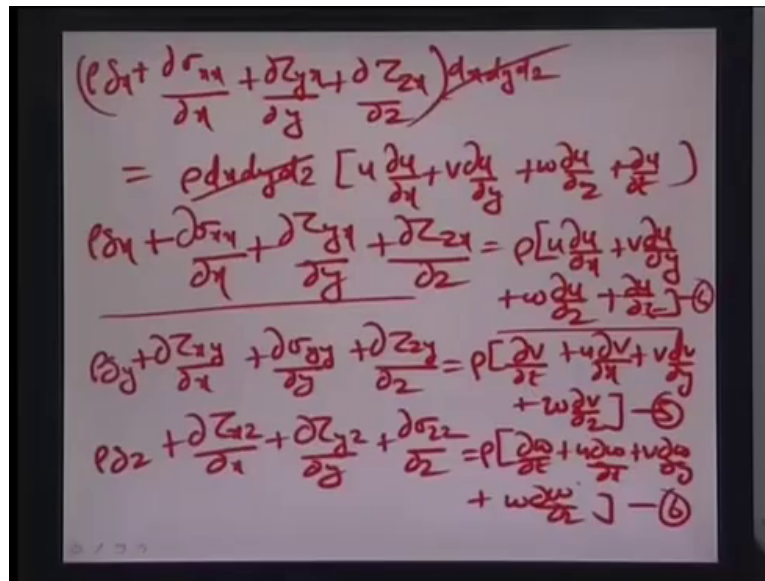 (ρg_x + ∂σ_xx/∂x + ∂τ_yx/∂y + ∂τ_zx/∂z) dxdydz
= ρdxdydz [u ∂u/∂x + v ∂u/∂y + w ∂u/∂z + ∂u/∂t)
ρg_x + ∂σ_xx/∂x + ∂τ_yx/∂y + ∂τ_zx/∂z = ρ[u ∂u/∂x + v ∂u/∂y
+ w ∂u/∂z + ∂u/∂t] –
ρg_y + ∂τ_xy/∂x + ∂σ_yy/∂y + ∂τ_zy/∂z = ρ[∂v/∂t + u ∂v/∂x + v ∂v/∂y
+ w ∂v/∂z] – ⑤
ρg_z + ∂τ_xz/∂x + ∂τ_yz/∂y + ∂σ_zz/∂z = ρ[∂w/∂t + u ∂w/∂x + v ∂w/∂y
+ w ∂w/∂z] – ⑥